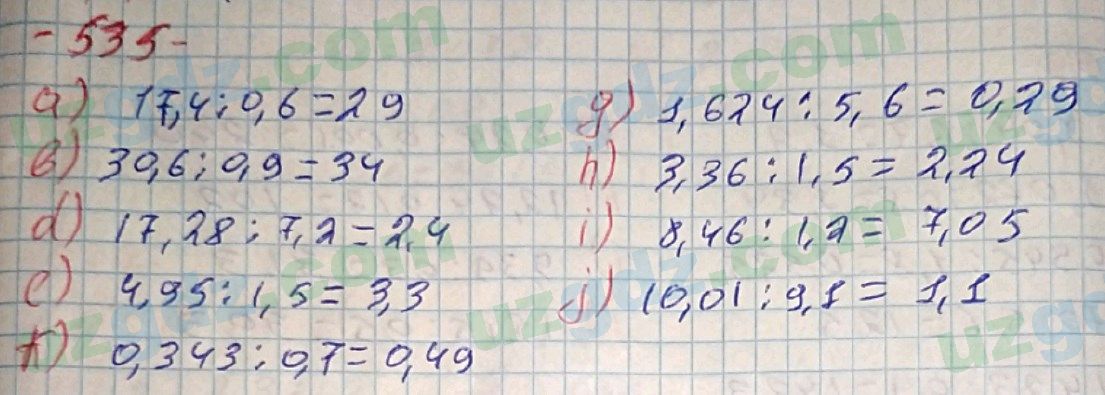 -535-
a) 17,4 : 0,6 = 29
b) 30,6 : 0,9 = 34
d) 17,28 : 7,2 = 2,4
e) 4,95 : 1,5 = 3,3
f) 0,343 : 0,7 = 0,49
g) 1,624 : 5,6 = 0,29
h) 3,36 : 1,5 = 2,24
i) 8,46 : 1,2 = 7,05
j) 10,01 : 9,1 = 1,1
uzgdz.com
uzgdz.com
uzgdz.com
uzgdz.com
uzgdz
uzgdz